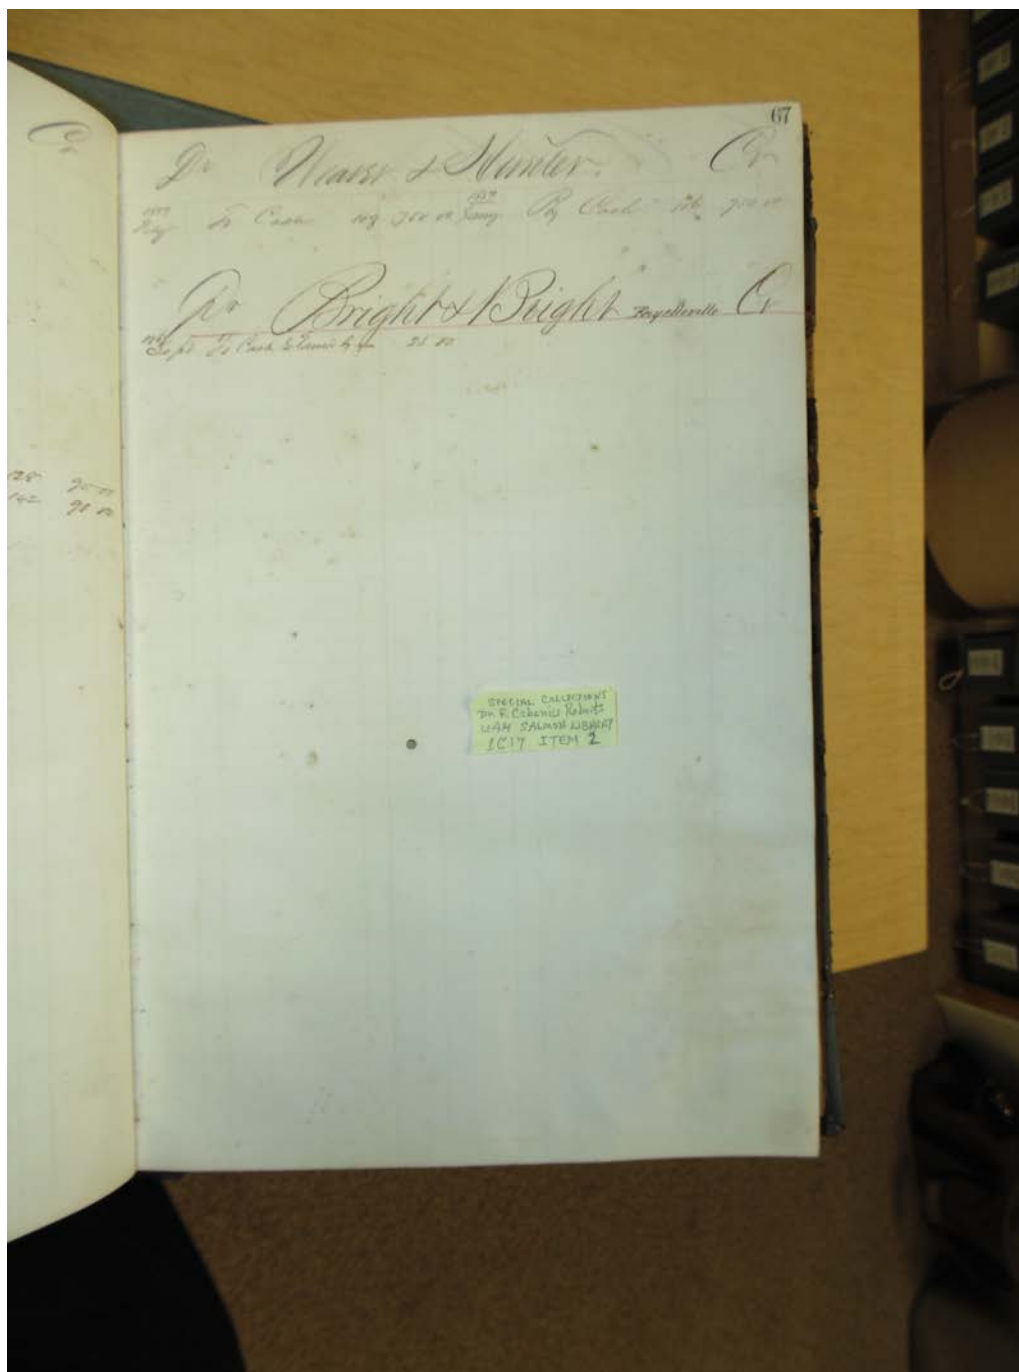 Cr
128 90 00
142 90 00
67
Dr Weaver & Hunter. Cr
1859 To Cash 108 750 00 1859 By Cash 750 00
Dr Bright & Bright Fayetteville Cr
Sept To Cash 25 00
SPECIAL COLLECTIONS
Dr. F. Roberts
UAH SALMON LIBRARY
1C17 ITEM 2